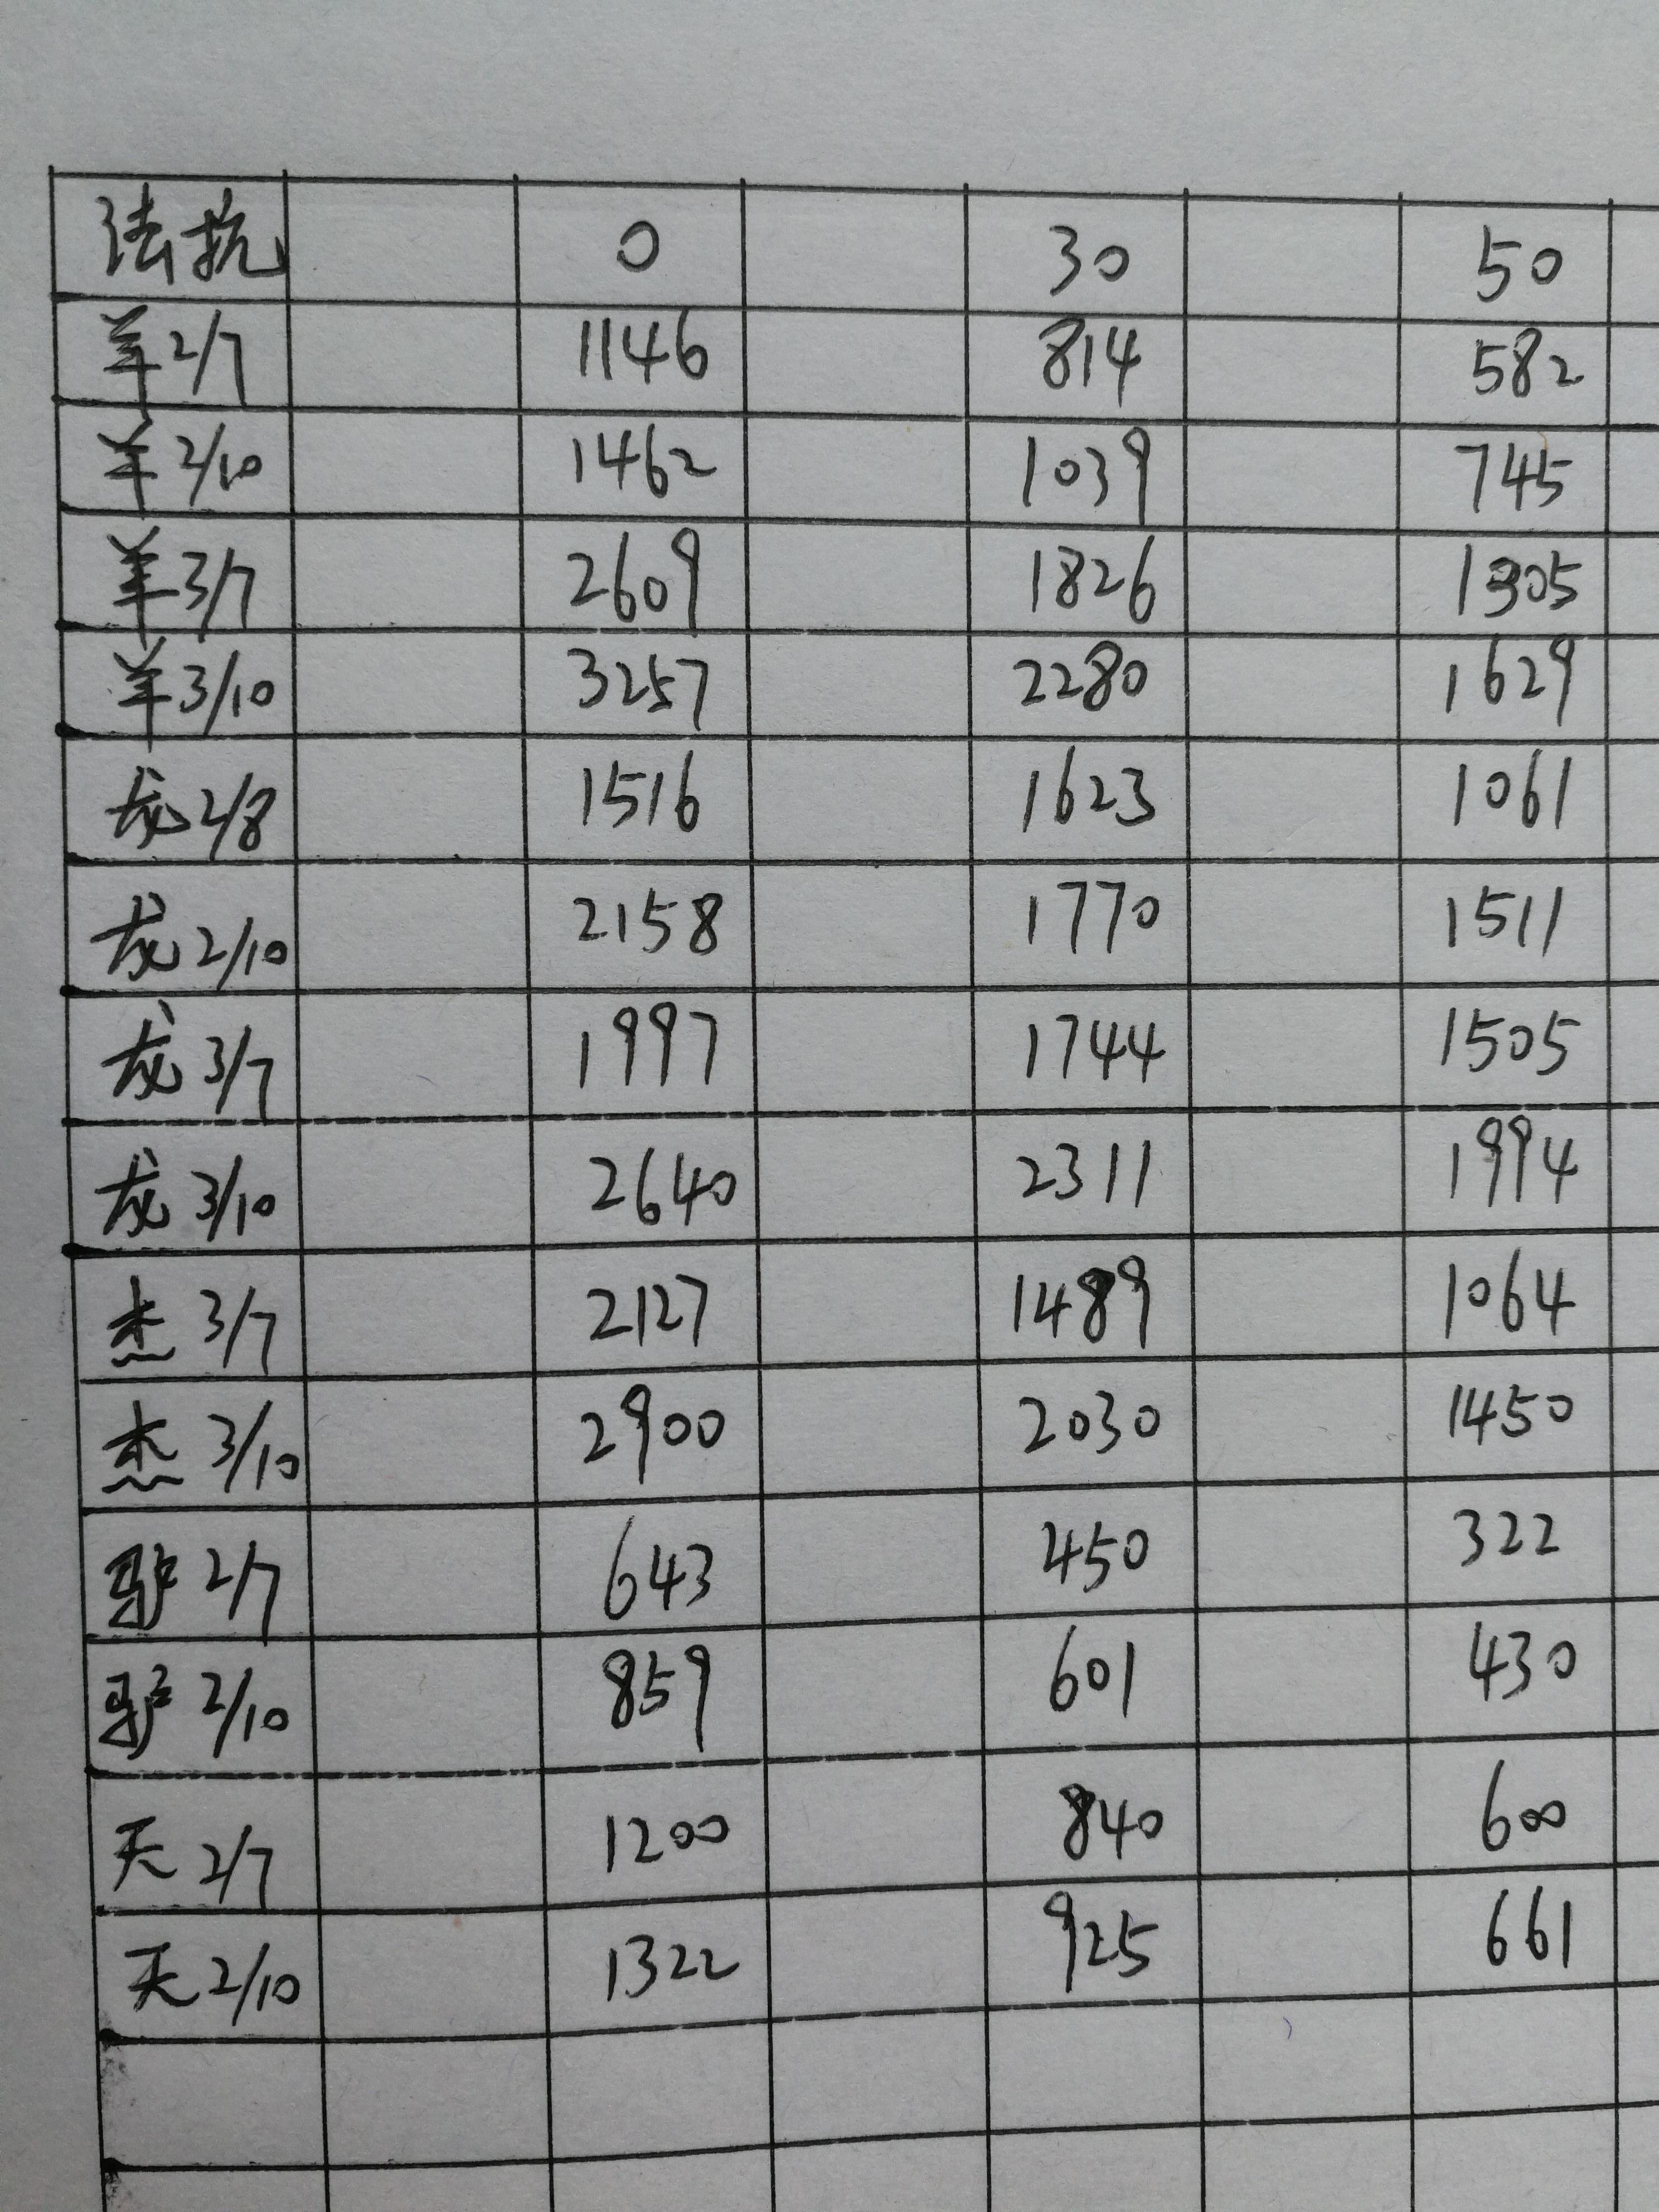 法抗 0 30 50
羊2/7 1146 814 582
羊2/10 1462 1039 745
羊3/7 2609 1826 1305
羊3/10 3257 2280 1629
龙2/8 1516 1623 1061
龙2/10 2158 1770 1511
龙3/7 1997 1744 1505
龙3/10 2640 2311 1994
杰3/7 2127 1489 1064
杰3/10 2900 2030 1450
驴2/7 643 450 322
驴2/10 859 601 430
天2/7 1200 840 600
天2/10 1322 925 661